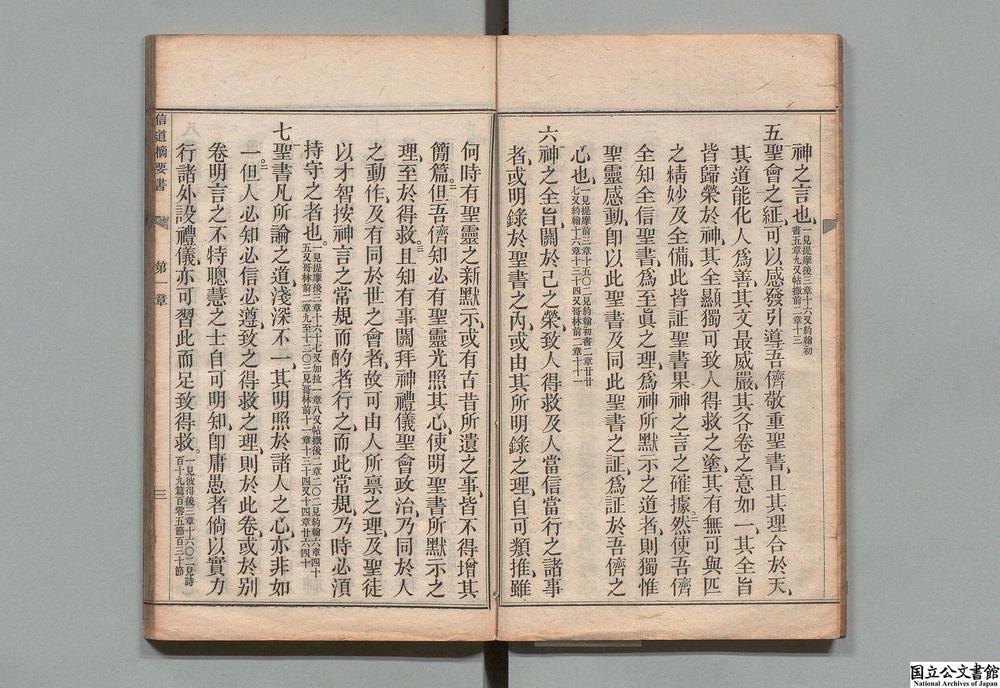 神之言也、一見提摩後三章十六又約翰初書五章九又帖撒前二章十三
五聖會之証、可以感發引導吾儕敬重聖書、且其理合於天、
其道能化人爲善、其文最威嚴、其各卷之意如一、其全旨
皆歸榮於神、其全顯獨可致人得救之塗、其有無可與匹
之精妙及全備、此皆証聖書果神之言之確據、然使吾儕
全知全信聖書爲至眞之理、爲神所默示之道者、則獨惟
聖靈感動、卽以此聖書及同此聖書之証、爲証於吾儕之
心也、一見提摩前三章十五〇二見約翰初書二章廿廿七又約翰十六章十三十四又哥林前二章十十一
六神之全旨、關於己之榮、致人得救、及人當信當行之諸事
者、或明錄於聖書之內、或由其所明錄之理、自可類推、雖
何時有聖靈之新默示、或有古昔所遺之事、皆不得增其
簡篇、但吾儕知必有聖靈光照其心、使萌聖書所默示之
理、至於得救、且知有事關拜神禮儀、聖會政治、乃同於人
之動作、及有同於世之會者、故可由人所禀之理、及聖徒
以才智按神言之常規而酌者行之、而此常規、乃時必須
持守之者也、一見提摩後三章十六十七又加拉一章八又帖撒後二章二〇二見約翰六章四十五又哥林前二章九至十二〇三見哥林前十一章十三十四又十四章廿六四十
七聖書凡所論之道、淺深不一、其明照於諸人之心、亦非如
一、但人必知必信必遵、致之得救之理、則於此卷、或於别
卷明言之、不特聰慧之士、自可明知、卽庸愚者、倘以實力
行諸外設禮儀、亦可習此而足致得救。一見彼得後三章十六〇二見詩百十九篇百零五節百三十節
信道摘要書
第一章
三
国立公文書館
National Archives of Japan